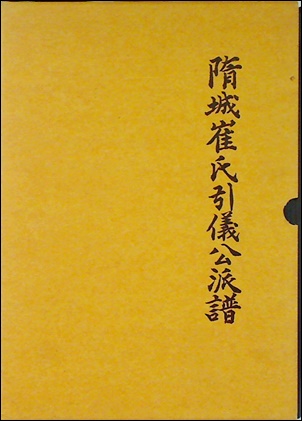 隋城崔氏引儀公派譜